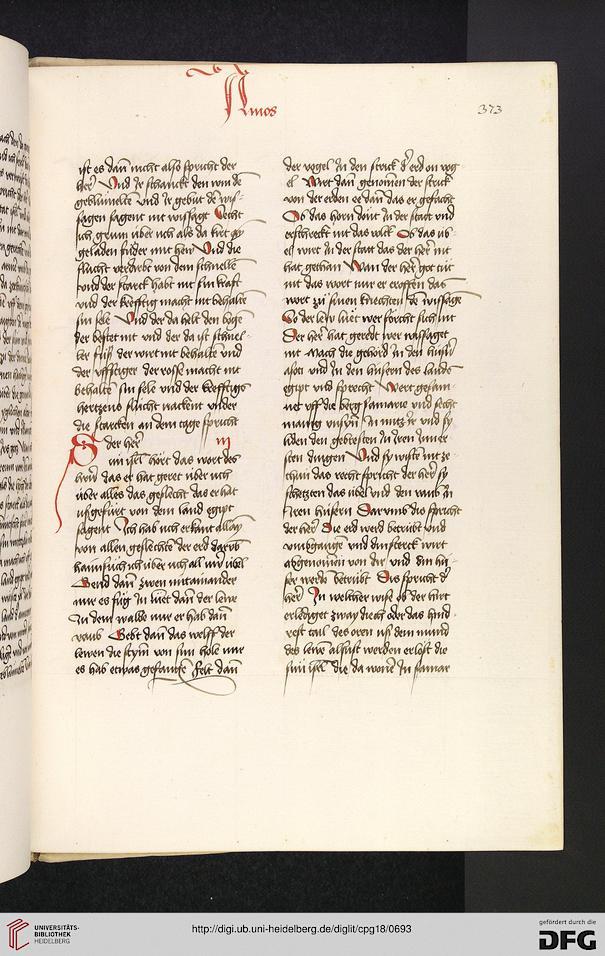 Amos
373
ist es dañ nicht also spricht der
her Und Ir schanckt den win de
Und Ir gebüt de wis-
sagen sagent nit wissagt Secht
ich grim über üch als da kirt ey
geladen füder mit hew Und die
flucht verdirbt von dem schnelle
vnd der starck habt nit sin kraft
vnd der krefftig macht nit behalte
sin sele Und der da helt den boge
der bestet nit vnd der da ist schnel-
ler füss der wirt nit behalte vnd
der vffstiger der rosse macht nit
behalte sin sele vnd der krefftigs
hertzens flücht nackent vnder
die starcken an dem tage spricht
der her
III
isrl hört das wort des
herñ das er hat geret über üch
über alles das geschlecht das er hat
usgefürt von dem land egipt
sagent Ich hab üch erkant allain
von allen geslechte der erd darüb
haimsuch ich über üch all üwr übel
Gend dañ zwen mitainander
nür es füg In süst dañ der lewe
In dem walde nur er hab dañ
raub Gebt dañ das welff der
lewen die stym von sim hole nur
es hab etwas gefangen Felt dañ
der vogel In den strick der erd on vog-
el Wirt dañ genomen der strick
von der erden ee dañ das er gefacht
Ob das horn dönt In der statt vnd
erschreckt nit das volk Ob das üb-
el wirt In der stat das der her nit
hat gethan Wan der her got tüt
nit das wort nur er eroffen das
wort zu sinen knechten de wissage
So der lew lüet wer förcht sich nit
Der her hat geredt wer wissaget
nit Mach die gehörd In den hüsern
vnd In den hüsern des lands
egipt vnd sprecht Wert gesam-
net vff die berg samarie vnd secht
manig In mitz Ir vnd sy
liden den gebresten In Iren inner
sten dingen Und sy wiste nit ze
thun das recht spricht der her sy
schetzten das übel vnd den raub In
Iren hüsern Darumb dis spricht
der her Die erd werd betrübt vnd
vmbgangen vnd din sterck wirt
abgenomen von dir vnd din hü-
ser werde Dis spricht der
her In welcher wise ob der hirt
erlediget zway diech oder das hind-
rest tail des oren us dem mund
des lewe alsust werden erlöst die
sün isrl die da wone In samar
UNIVERSITÄTS-
BIBLIOTHEK
HEIDELBERG
http://digi.ub.uni-heidelberg.de/diglit/cpg18/0693
gefördert durch die
DFG